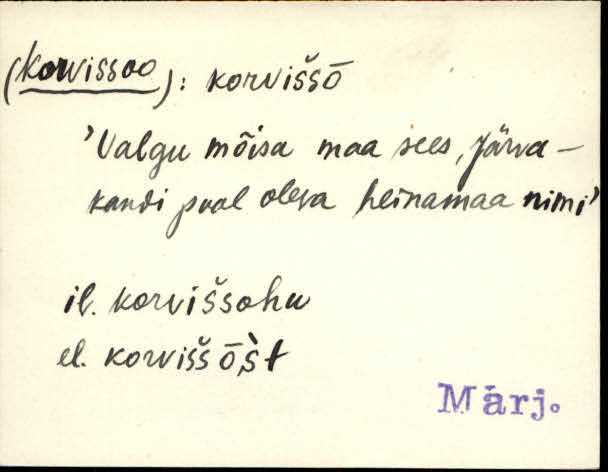 (Korvissoo): korvišsō
'Valgu mõisa maa sees, Järva-
kandi pool oleva heinamaa nimi'
il. korvišsohu
el. korvišsōs̀t
Märj.